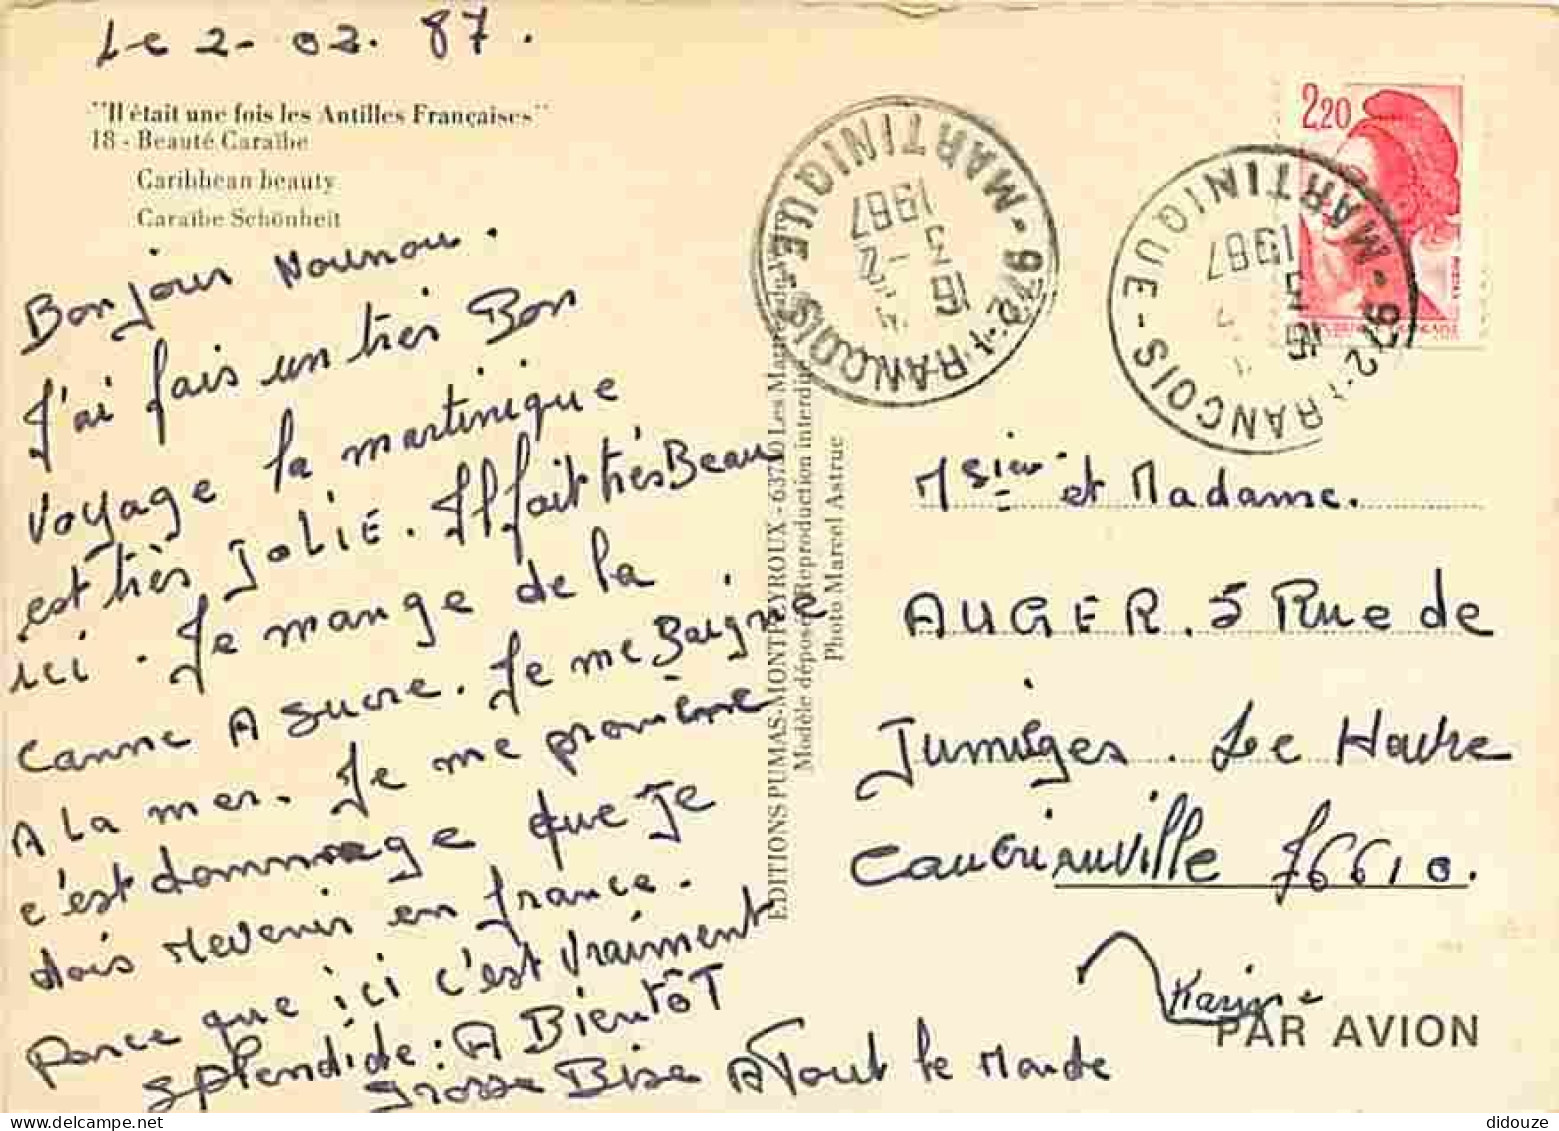 Le 2-02.87.
"Il était une fois les Antilles Françaises"
18 - Beauté Caraïbe
Caribbean beauty
Caraïbe Schönheit
Bonjour Nounou.
J'ai fais un très Bon
voyage la martinique
est très JOLIE. Il fait très Beau
ici. Je mange de la
canne A sucre. Je me Baigne
A La mer. Je me promène
c'est dommage que Je
dois revenir en france.
parce que ici c'est vraiment
splendide : A Bientôt
grosse Bise A Tout le Monde
EDITIONS PUMAS-MONTPEYROUX - 63730 Les Martres de
Modèle déposé. Reproduction interdite
Photo Marcel Astrue
972-FRANÇOIS - MARTINIQUE
16
5 -2
1987
972-FRANÇOIS - MARTINIQUE
16
5
1987
2,20
Msieur et Madame.
AUGER. 5 Rue de
Jumièges. Le Havre
Caucriauville 76610.
Karine
PAR AVION
didouze
delcampe.net